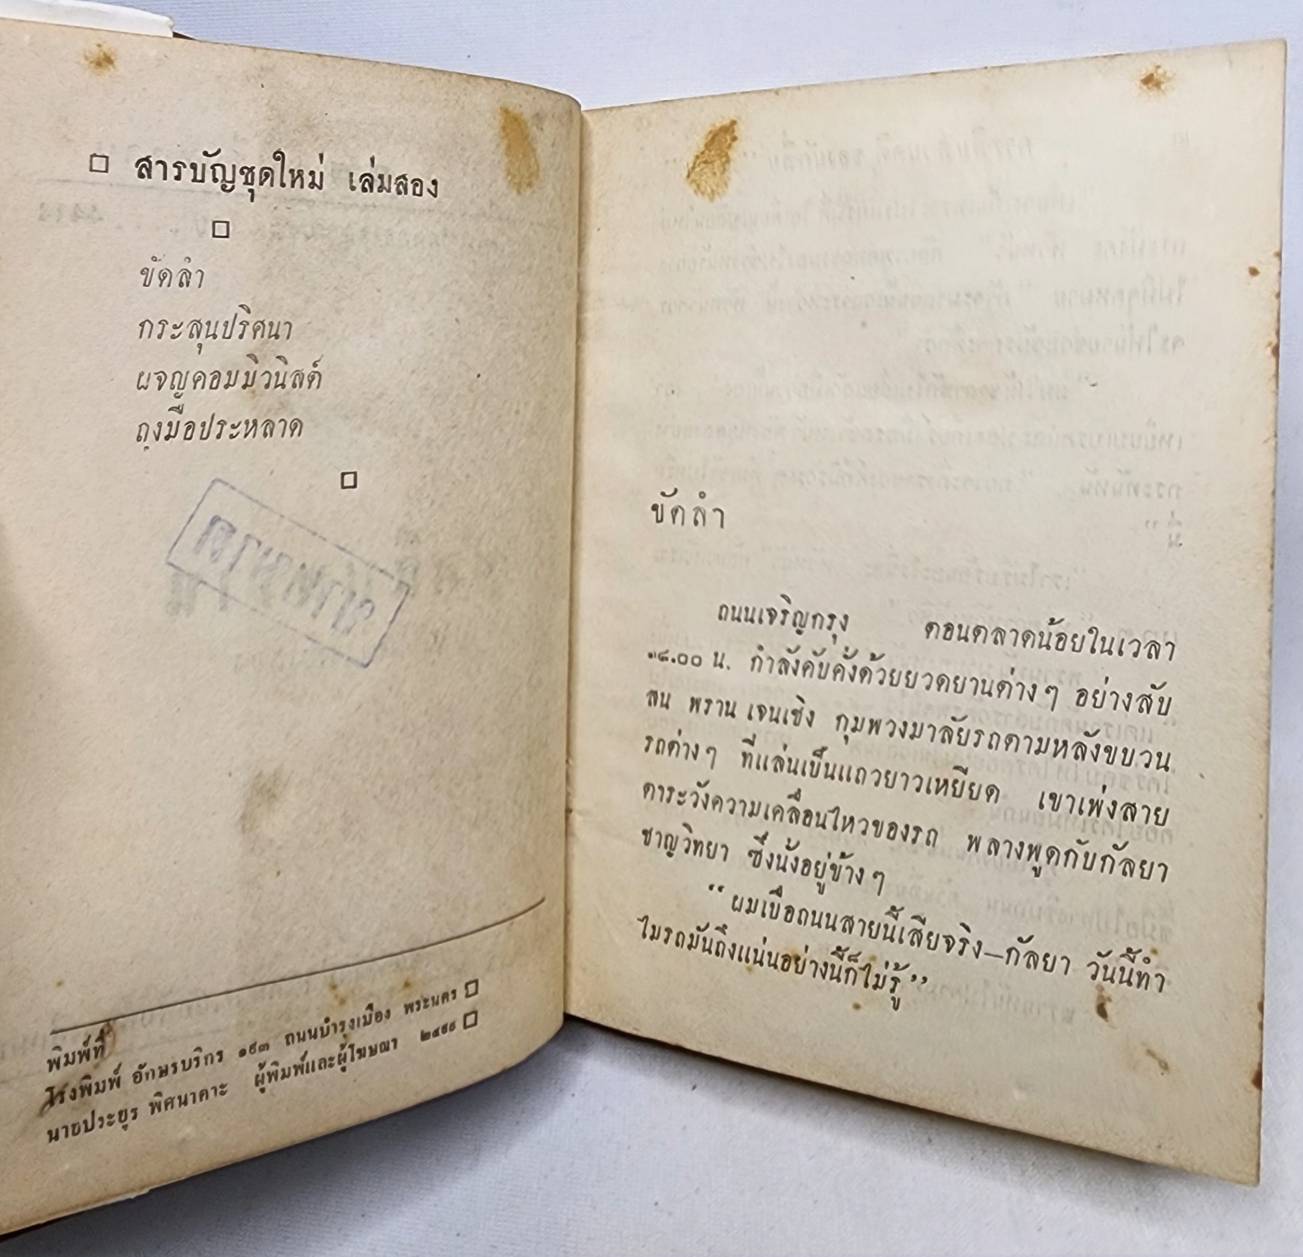 สารบัญชุดใหม่ เล่มสอง
ขัดลำ
กระสุนปริศนา
ผจญคอมมิวนิสต์
ถุงมือประหลาด
พิมพ์ที่
โรงพิมพ์ อักษรบริการ ๑๙๓ ถนนบำรุงเมือง พระนคร
นายประยุร พิศนาคาะ ผู้พิมพ์และผู้โฆษณา
ขัดลำ
ถนนเจริญกรุง ตอนตลาดน้อยในเวลา
๑๘.๐๐ น. กำลังคับคั่งด้วยยวดยานต่างๆ อย่างสับ
สน พราน เจนเชิง กุมพวงมาลัยรถตามหลังขบวน
รถต่างๆ ที่แล่นเป็นแถวยาวเหยียด เขาเพ่งสาย
ตาระวังความเคลื่อนไหวของรถ พลางพูดกับกัลยา
ชาญวิทยา ซึ่งนั่งอยู่ข้างๆ
“ผมเบื่อถนนสายนี้เสียจริง—กัลยา วันนี้ทำ
ไมรถมันถึงแน่นอย่างนี้ก็ไม่รู้”